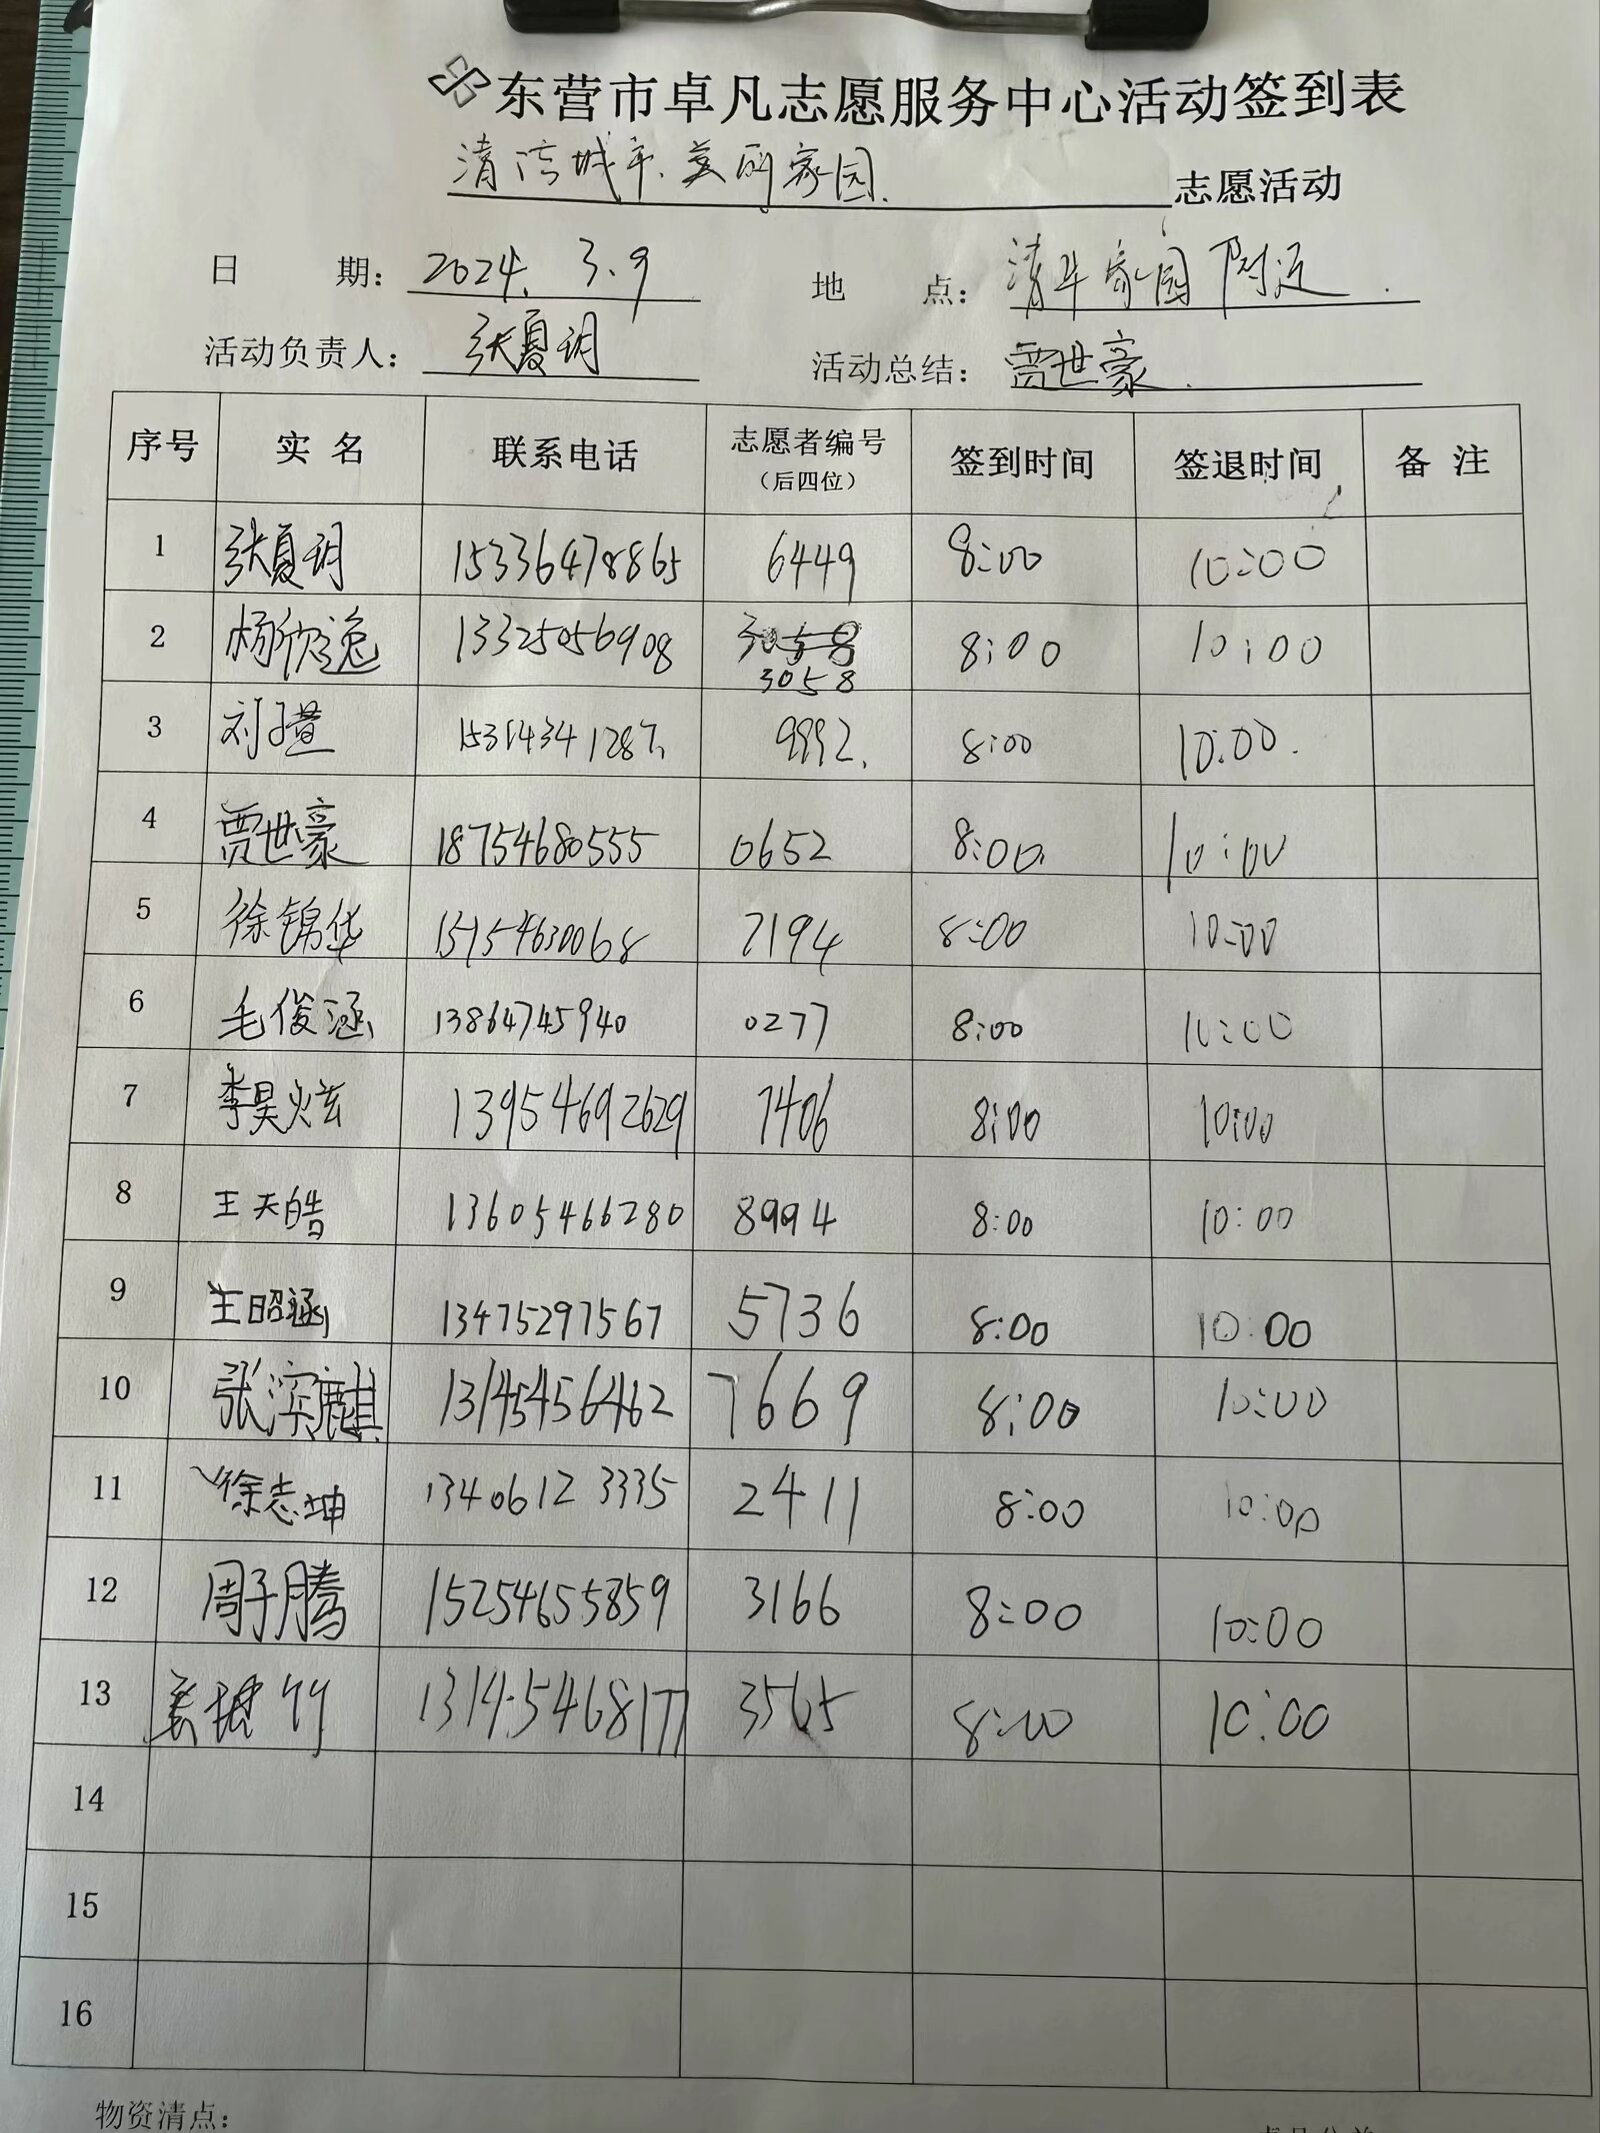 东营市卓凡志愿服务中心活动签到表
清洁城市、美丽家园. 志愿活动
日 期： 2024. 3.9 地 点： 清华家园附近.
活动负责人： 张夏玥 活动总结： 贾世豪.
序号 实名 联系电话 志愿者编号（后四位） 签到时间 签退时间 备注
1 张夏玥 15336478865 6449 8:00 10:00
2 杨欣逸 13325056908 3058 8:00 10:00
3 刘子萱 15314341287 9992. 8:00 10:00.
4 贾世豪 18754680555 0652 8:00. 10:00
5 徐锦华 15154630068 7194 8:00 10:00
6 毛俊涵 13864745940 0277 8:00 10:00
7 李昊炫 13954692629 7406 8:00 10:00
8 王天皓 13605466280 8994 8:00 10:00
9 王昭涵 13475297567 5736 8:00 10:00
10 张滨麒 13145456462 7669 8:00 10:00
11 徐志坤 13406123335 2411 8:00 10:00
12 周子腾 15254655859 3166 8:00 10:00
13 13145468177 3565 8:00 10:00
14
15
16
物资清点：